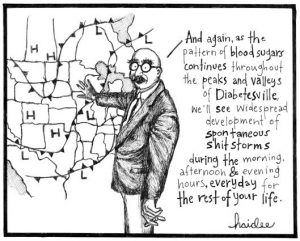 And again, as the
pattern of blood sugars
continues throughout
the peaks and valleys
of Diabetesville,
we'll see widespread
development of
spontaneous
shitstorms
during the morning,
afternoon & evening
hours, everyday for
the rest of your life.
haidee
H
L
H
L
H
H
L
L